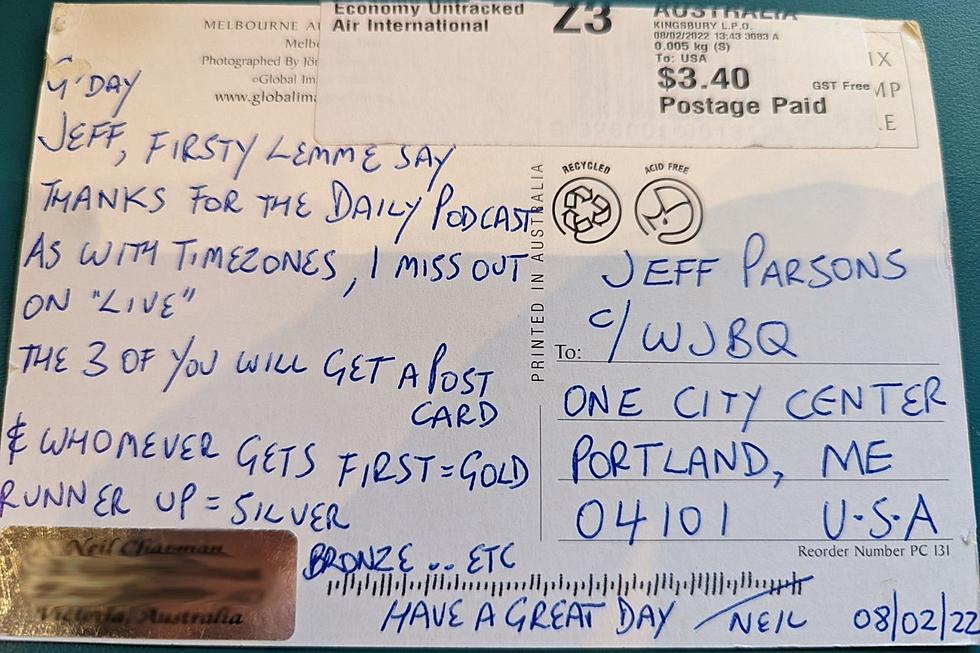 MELBOURNE
Melb
Photographed By
©Global Im
www.globalima
Economy Untracked
Air International
Z3
AUSTRALIA
KINGSBURY L.P.O.
08/02/2022 13:43 3083 A
0.005 kg (S)
To: USA
$3.40 GST Free
Postage Paid
IX
MP
.E
G'DAY
JEFF, FIRSTY LEMME SAY
THANKS FOR THE DAILY PODCAST
AS WITH TIMEZONES, I MISS OUT
ON "LIVE"
THE 3 OF YOU WILL GET A POST
CARD
& WHOMEVER GETS FIRST=GOLD
RUNNER UP = SILVER
BRONZE .. ETC
HAVE A GREAT DAY NEIL 08/02/22
Neil Charman
Victoria, Australia
PRINTED IN AUSTRALIA
RECYCLED
ACID FREE
JEFF PARSONS
To: C/ WJBQ
ONE CITY CENTER
PORTLAND, ME
04101 U.S.A
Reorder Number PC 131